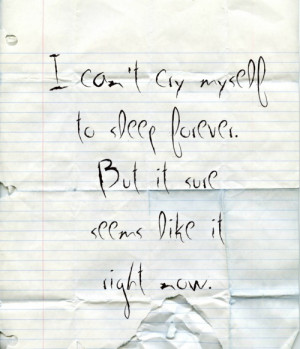 I can't cry myself
to sleep forever.
But it sure
seems like it
right now.